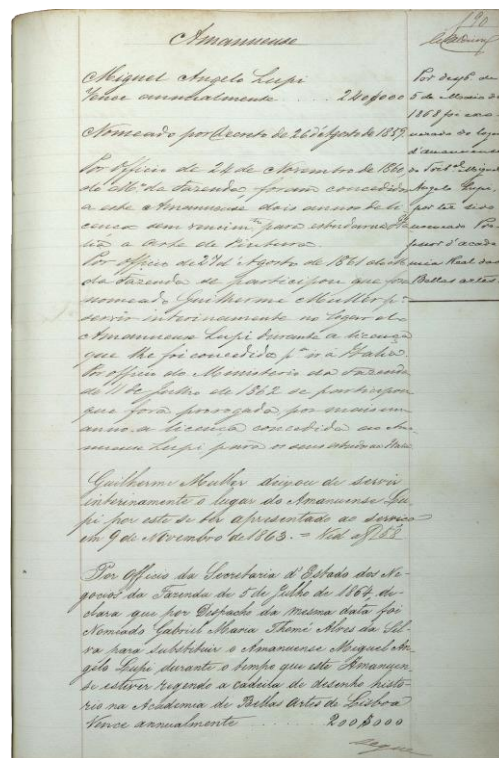 190
Amanuense
Miguel Angelo Lupi
Vence annualmente .... 240$000
Nomeado por Decreto de 26 d'Agosto de 1859.
Por Officio de 24 de Novembro de 1860,
do Mº da Fazenda foram concedidos
a este Amanuense dois annos de li-
cença sem vencimto para estudar na Ita-
lia a arte de Pintura.
Por officio de 27 d'Agosto de 1861 do Mº
da Fazenda se participou que fora
nomeado Guilherme Muller pª
servir interinamente no logar do
Amanuense Lupi durante a licença
que lhe foi concedida pª ir á Italia.
Por officio do Ministerio da Fazenda
de 11 de Julho de 1862 se participou
que fora prorogada por mais um
anno a licença concedida ao Ama-
nuense Lupi para os seus estudos na Italia
Guilherme Muller deixou de servir
interinamente o lugar do Amanuense Lu-
pi por este se ter apresentado ao serviço
em 9 de Novembro de 1863. = Vid. a f
Por Officio da Secretaria d'Estado dos Ne-
gocios da Fazenda de 5 de Julho de 1864, de-
clara que por Despacho da mesma data foi
Nomeado Gabriel Maria Thomé Alves da Sil-
va para substituir o Amanuense Miguel An-
gelo Lupi durante o tempo que este Amanuen-
se estiver regendo a cadeira de desenho histo-
rico na Academia de Bellas Artes de Lisboa
Vence annualmente .... 200$000
Segue
Por desp. de
5 de Março de
1868 foi exo-
nerado do logar
d'amanuense
do Tribal Miguel
Angelo Lupi,
por ter sido
nomeado Pro-
fessor d'acade-
mia Real das
Bellas artes.